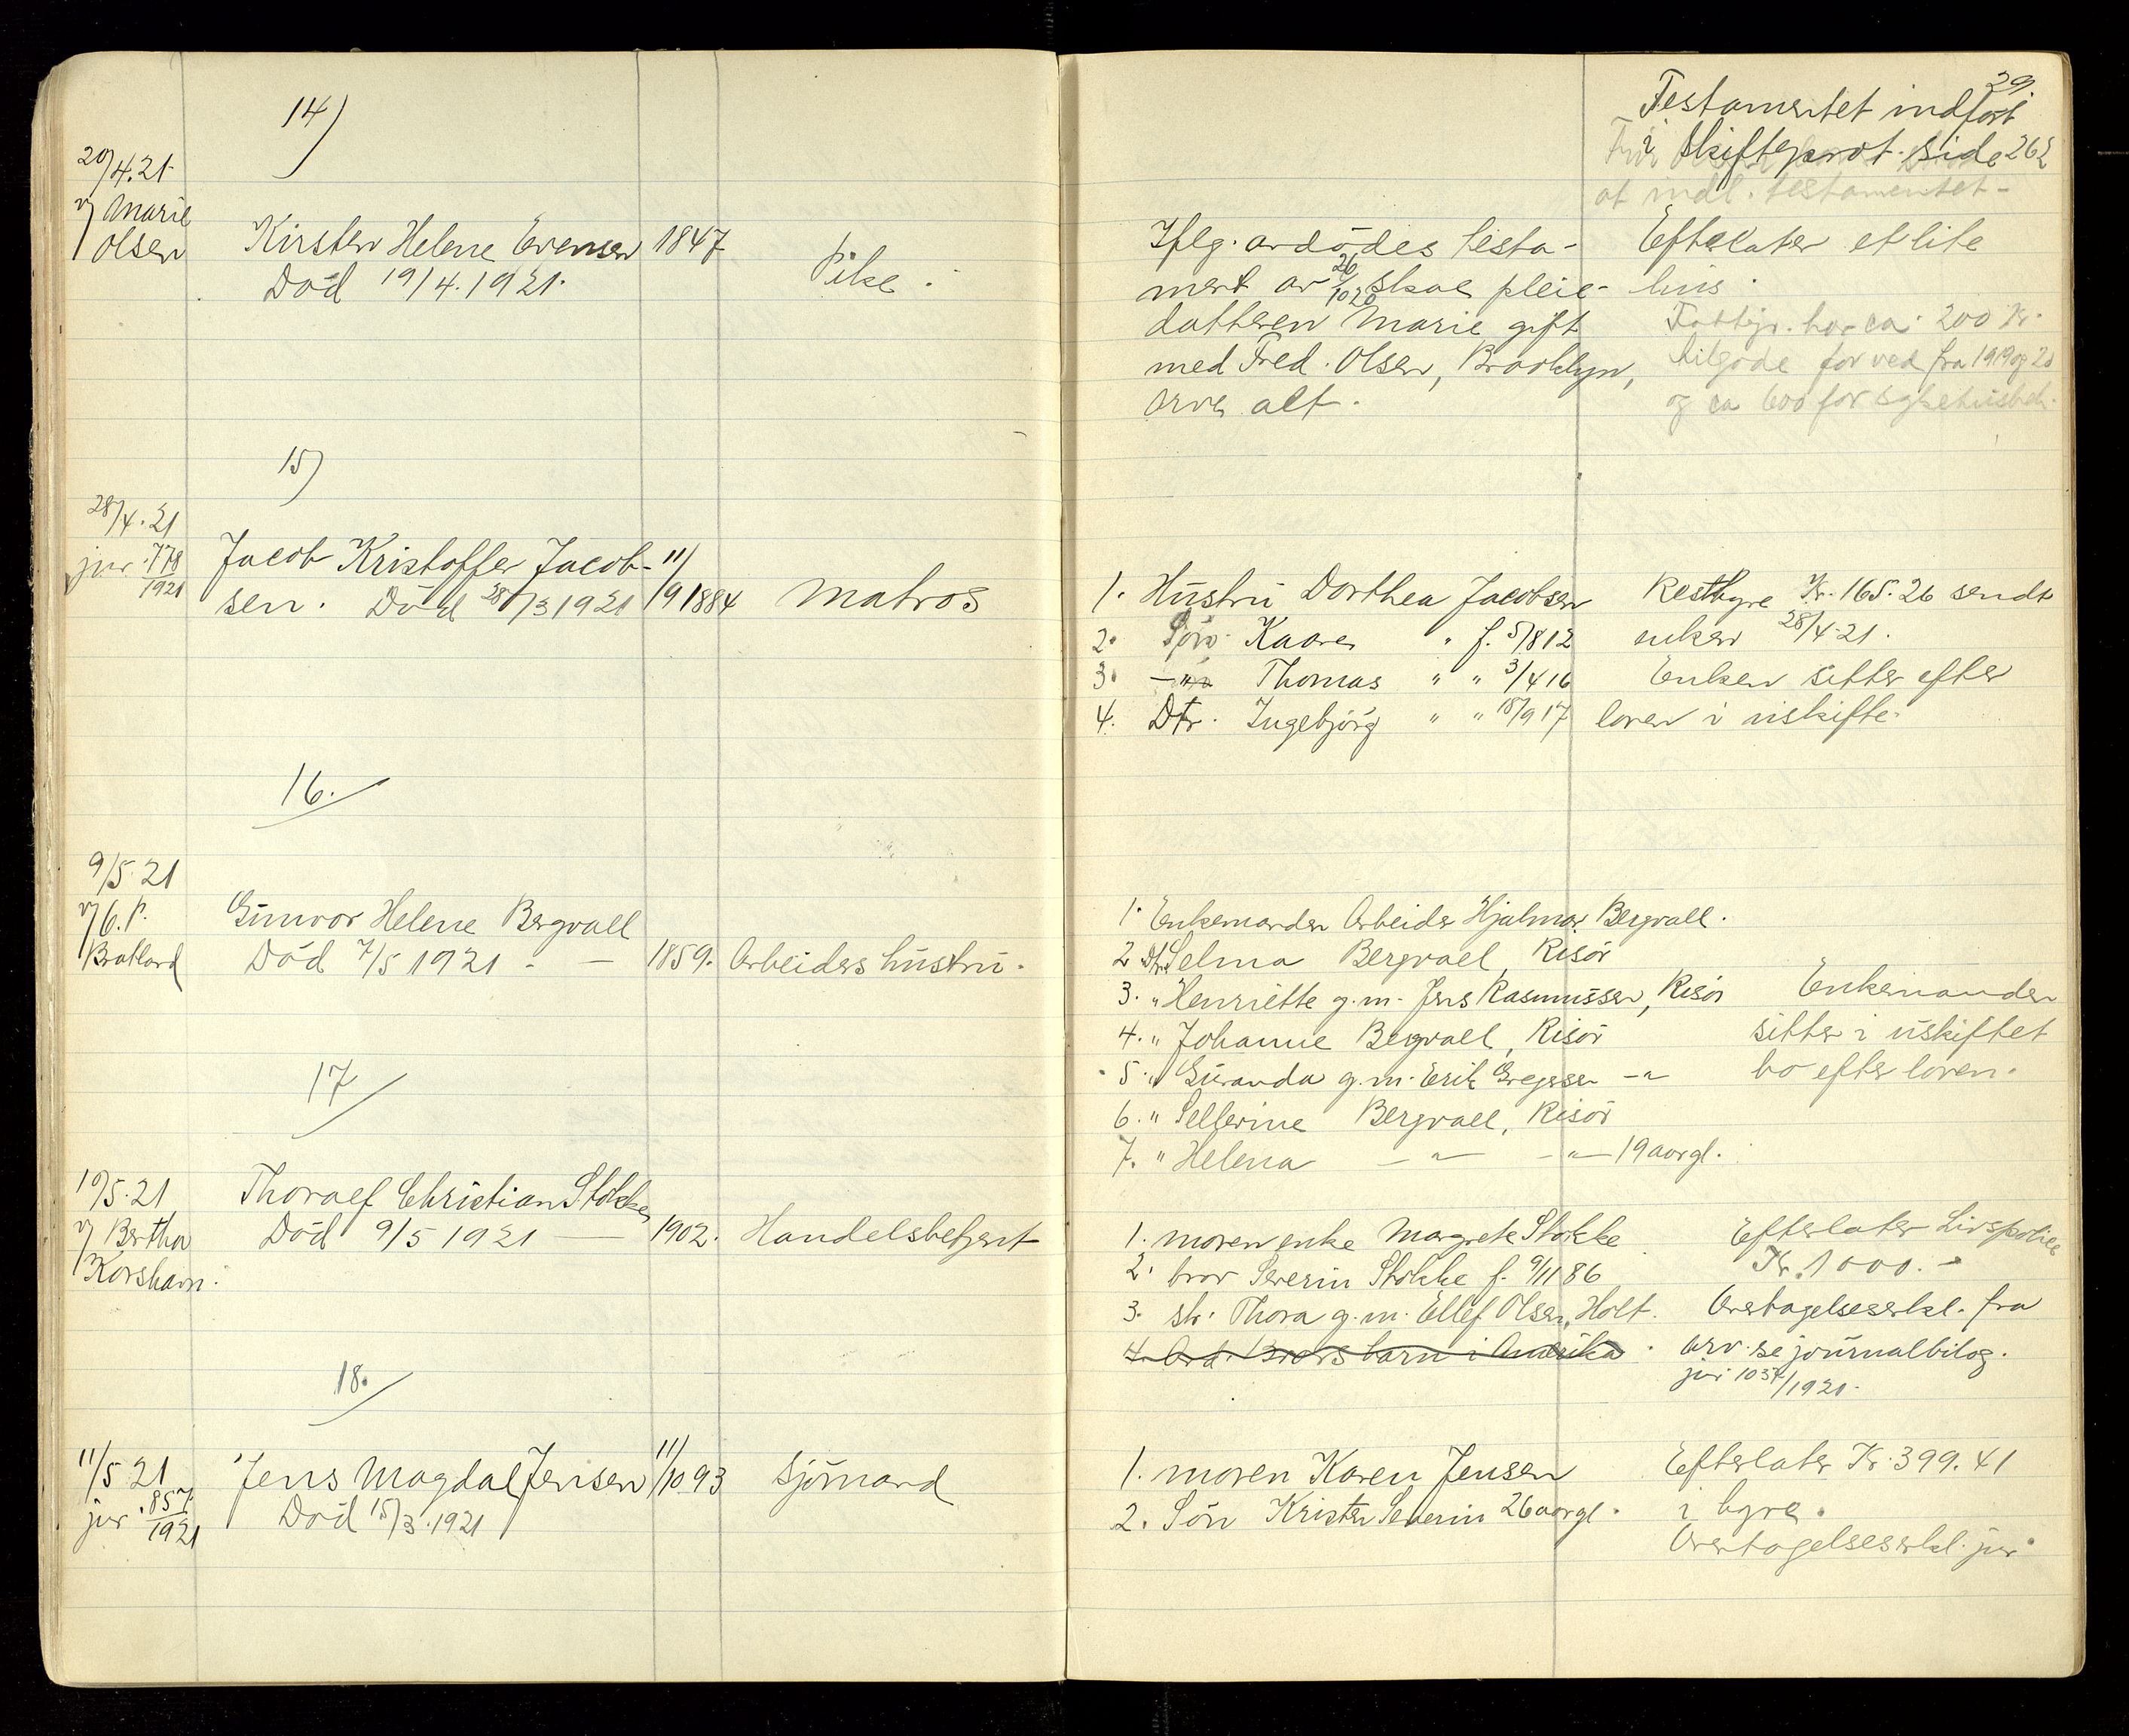 29.
14)
20/4.21
v/ Marie
Olsen
Kirsten Helene Evensen 1847
Död 19/4.1921.
Pike.
Iflg. avdödes testa-
ment av 26/10 20 skal pleie-
datteren Marie gift
med Fred. Olsen, Brooklyn,
arve alt.
Testamentet indført
i Skifteprot. side 262
at indl. testamentet-
Efterlater et lite
hus.
Fattigv. har ca. 200 Kr.
tilgode for ved fra 1919 og 20
og ca 600 for sykehusbeh.
15)
28/4.21
jnr. 778
1921
Jacob Kristoffer Jacob-
sen. Död 28/3 1921
11/9 1884
Matros
1. Hustru Dorthea Jacobsen
2. Sön Kaare " f. 5/8 12
3. -"- Thomas " " 3/4 16
4. Dtr. Ingebjörg " " 18/9 17
Resthyre Kr. 165.26 sendt
enken 28/4-21.
Enken sitter efter
loven i uskifte.
16.
9/5.21
v/ G. P.
Bratland
Gunvor Helene Bergvall
Död 7/5 1921 - — 1859. Arbeiders hustru.
1. Enkemanden Arbeider Hjalmar Bergvall.
2. Dtr. Selma Bergvall, Risör
3. " Henriette g.m. Jens Rasmussen, Risör
4. " Johanne Bergvall, Risör
5. " Guranda g.m. Erik Gregersen -"-
6. " Sellerine Bergvall, Risör
7. " Helena -"- -"- 19 aar gl.
Enkemanden
sitter i uskiftet
bo efter loven.
17
10/5.21
v/ Bertha
Korshavn.
Thoralf Christian Stokke
Död 9/5 1921 — 1902. Handelsbetjent
1. moren enke Magrete Stokke
2. bror Severin Stokke f. 9/11 86
3. str. Thora g.m. Ellef Olsen, Holt.
4. Avd. Brors barn i Amerika.
Efterlater Livspolice
Kr. 1000. -
Overtagelseserkl. fra
arv. se journalbilag.
jnr 1034/1921.
18.
11/5 21
jnr. 857
1921
Jens Magdal Jensen 11/10 93 Sjömand
Död 15/3.1921
1. moren Karen Jensen
2. Sön Krister Severin 26 aar gl.
Efterlater Kr. 399.41
i hyre.
Overtagelseserkl. jnr